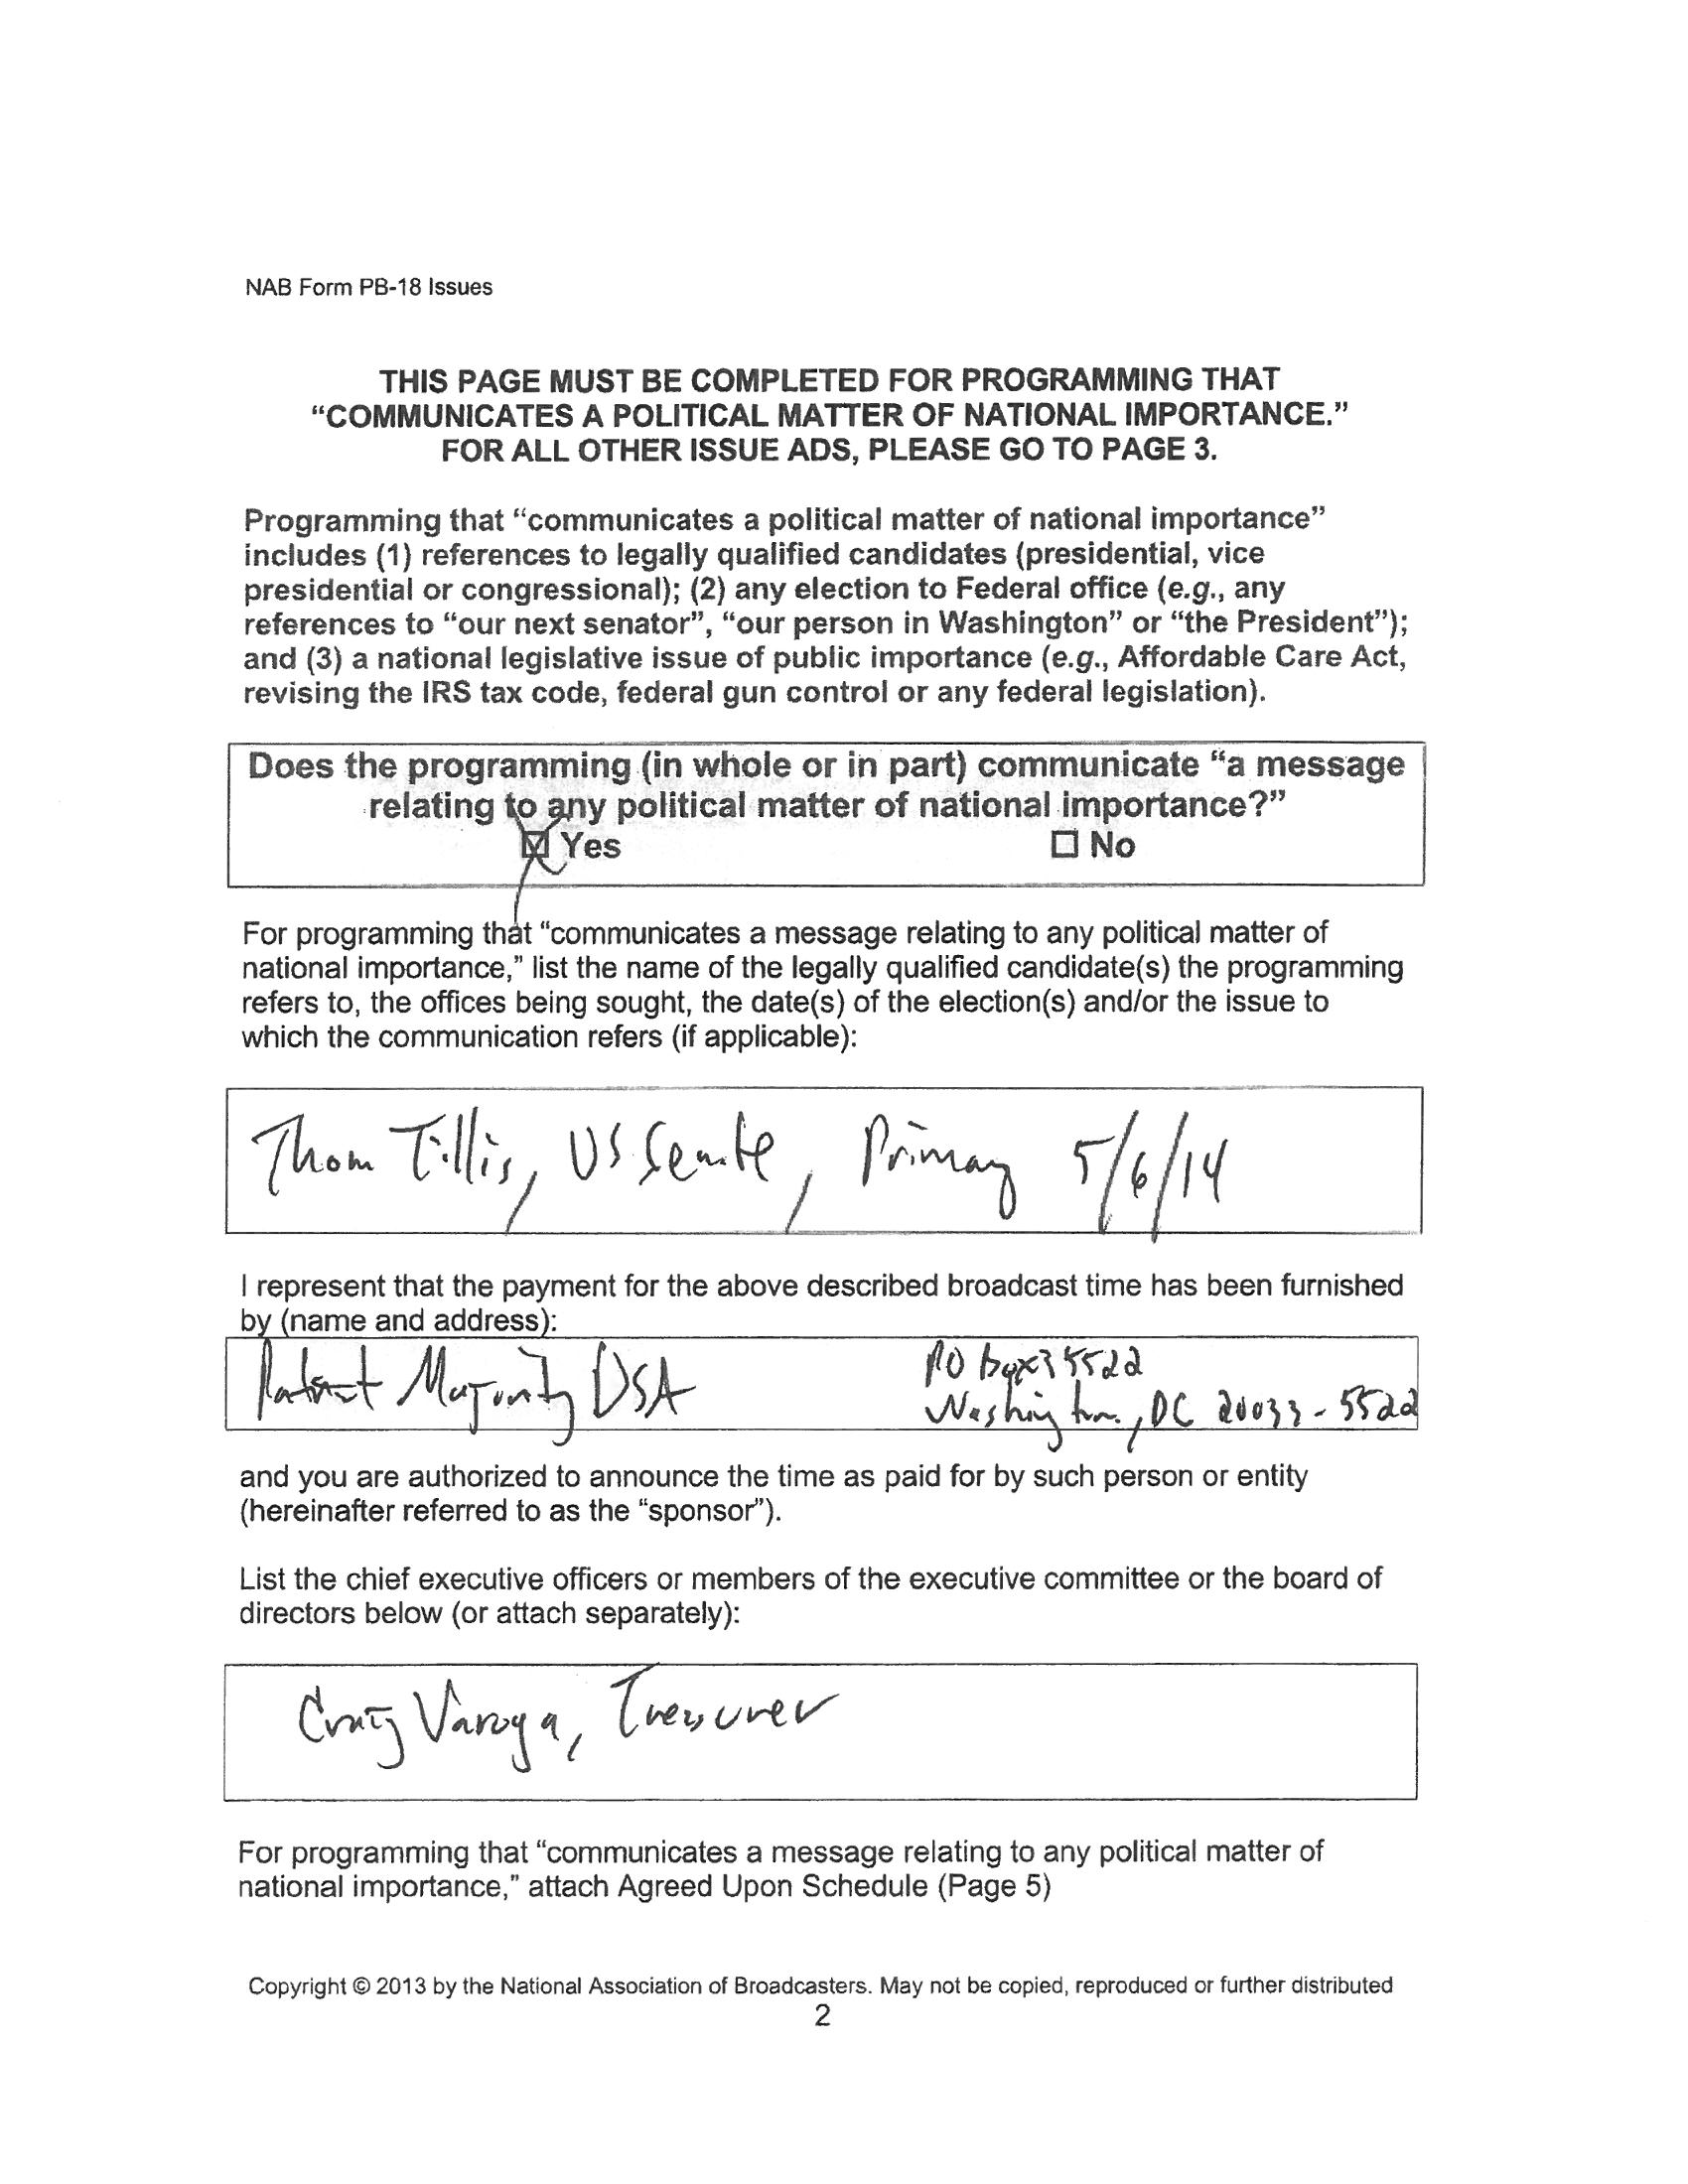 NAB Form PB-18 Issues
THIS PAGE MUST BE COMPLETED FOR PROGRAMMING THAT
“COMMUNICATES A POLITICAL MATTER OF NATIONAL IMPORTANCE.”
FOR ALL OTHER ISSUE ADS, PLEASE GO TO PAGE 3.
Programming that “communicates a political matter of national importance”
includes (1) references to legally qualified candidates (presidential, vice
presidential or congressional); (2) any election to Federal office (e.g., any
references to “our next senator”, “our person in Washington” or “the President”);
and (3) a national legislative issue of public importance (e.g., Affordable Care Act,
revising the IRS tax code, federal gun control or any federal legislation).
Does the programming (in whole or in part) communicate “a message
relating to any political matter of national importance?”
☒ Yes ☐ No
For programming that “communicates a message relating to any political matter of
national importance,” list the name of the legally qualified candidate(s) the programming
refers to, the offices being sought, the date(s) of the election(s) and/or the issue to
which the communication refers (if applicable):
Thom Tillis, US Senate, Primary 5/6/14
I represent that the payment for the above described broadcast time has been furnished
by (name and address):
Patriot Majority USA PO box 35522
Washington, DC 20033-5522
and you are authorized to announce the time as paid for by such person or entity
(hereinafter referred to as the “sponsor”).
List the chief executive officers or members of the executive committee or the board of
directors below (or attach separately):
Craig Varoga, Treasurer
For programming that “communicates a message relating to any political matter of
national importance,” attach Agreed Upon Schedule (Page 5)
Copyright © 2013 by the National Association of Broadcasters. May not be copied, reproduced or further distributed
2